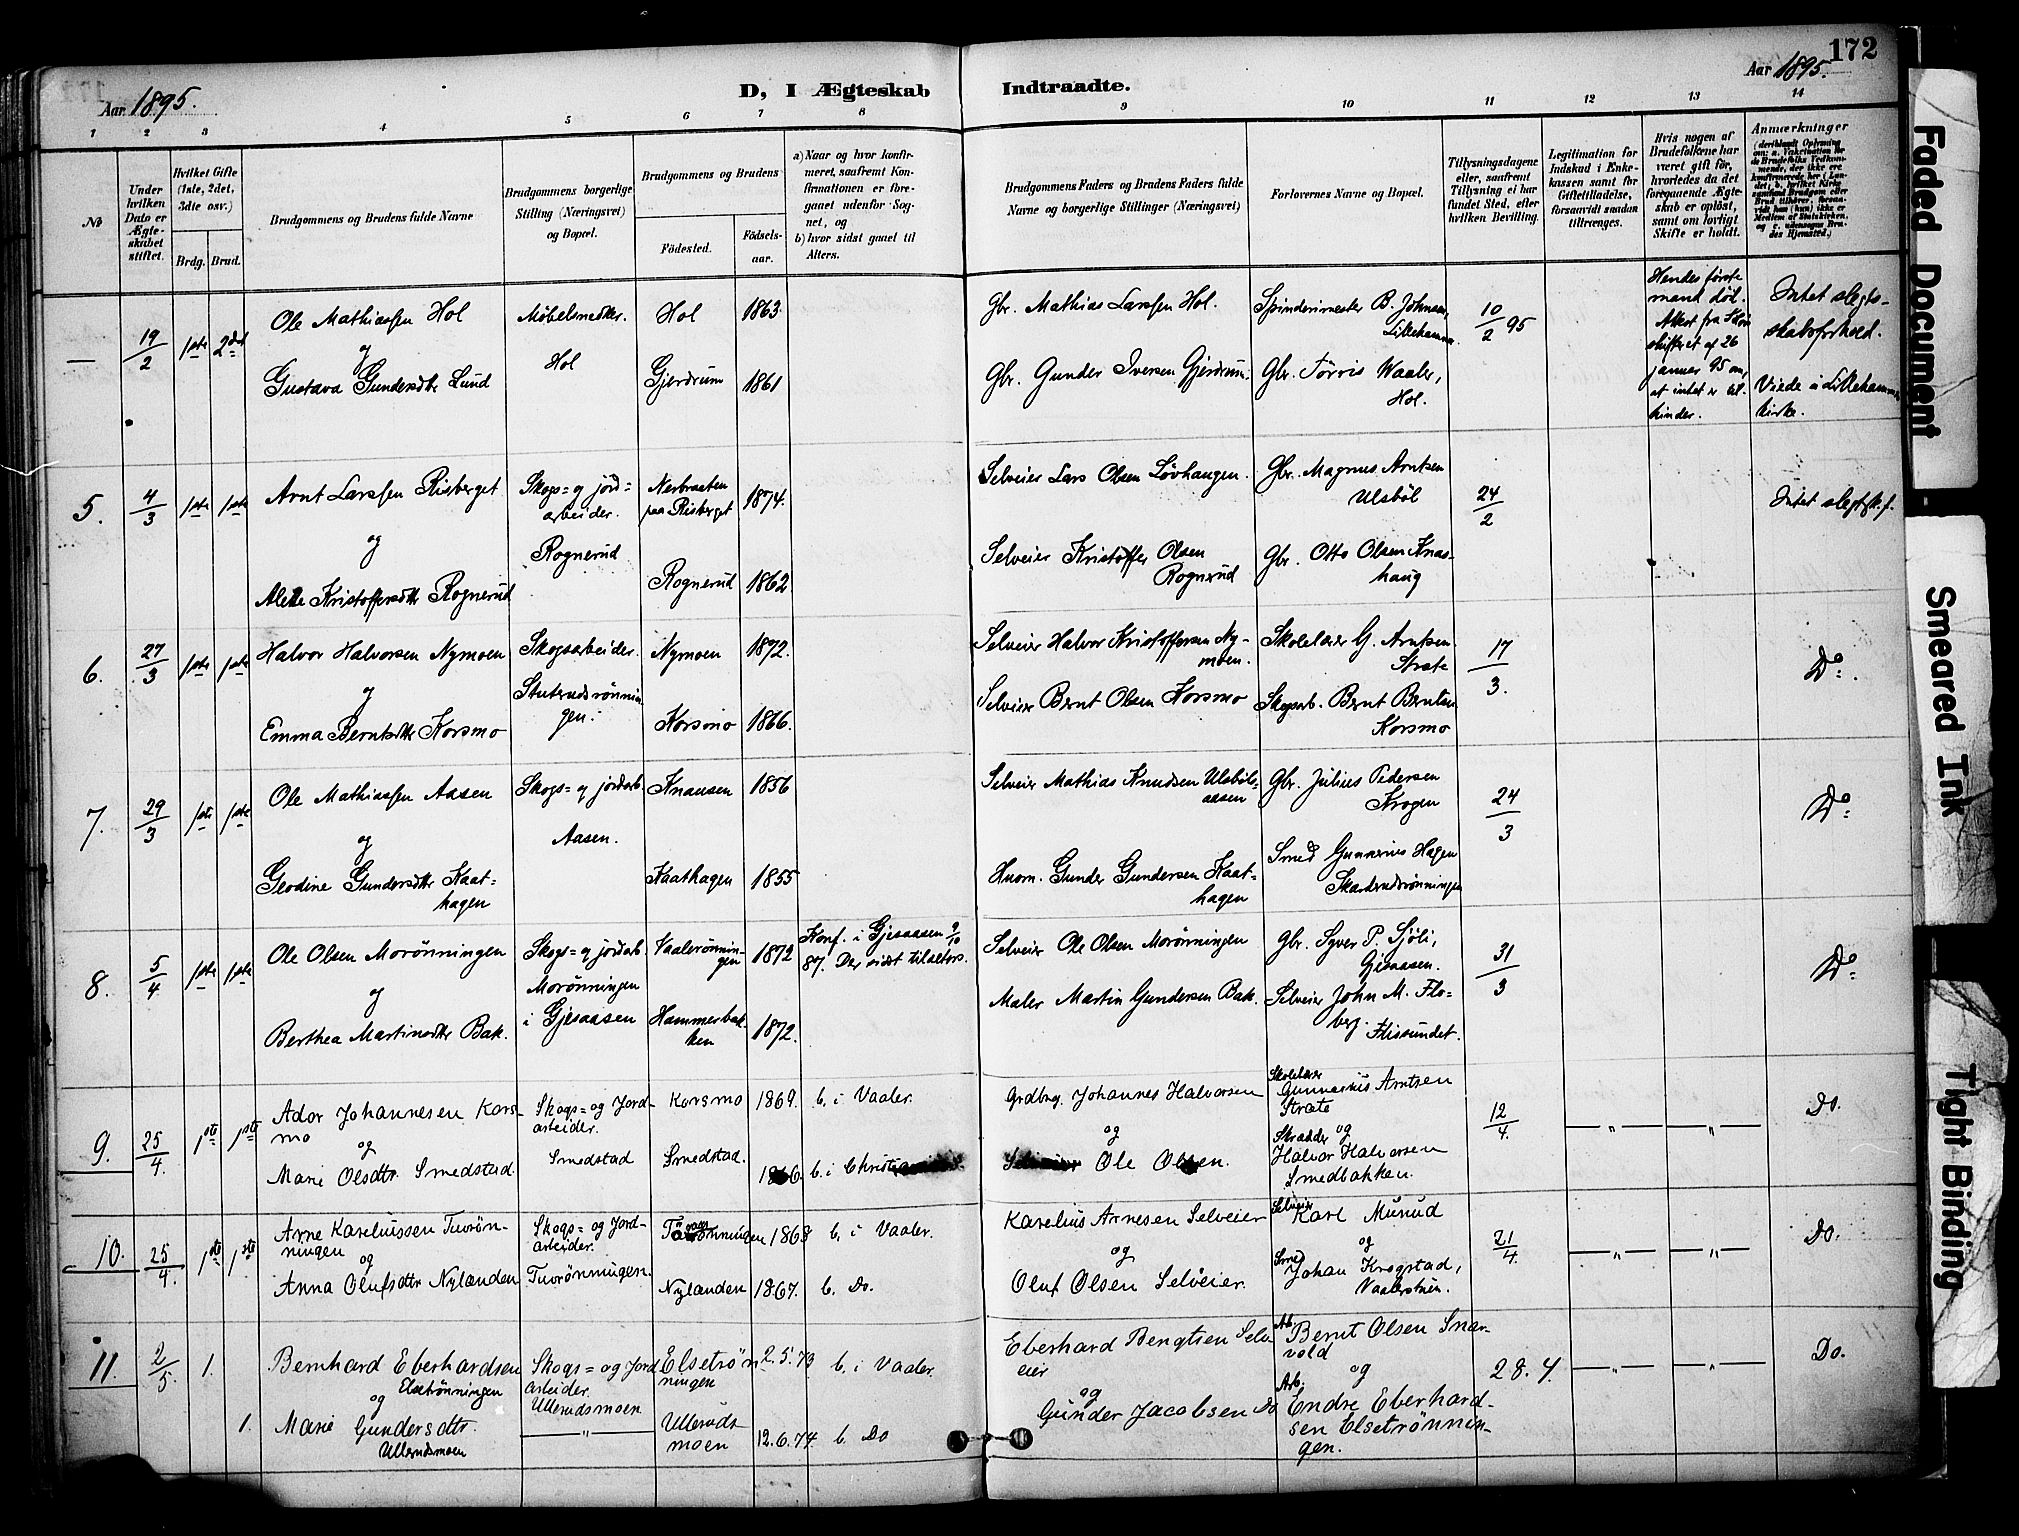 172
Aar 1895.
D, I Ægteskab Indtraadte.
Aar 1895.
1 2 3 4 5 6 7 8 9 10 11 12 13 14
No
Under hvilken Dato er Ægteskabet stiftet.
Hvilket Gifte (1ste, 2det, 3dte osv.)
Brdg. Brud.
Brudgommens og Brudens fulde Navne
Brudgommens borgerlige Stilling (Næringsvei) og Bopæl.
Brudgommens og Brudens
Fødested. Fødselsaar.
a) Naar og hvor konfirmeret, saafremt Konfirmationen er foregaaet udenfor Sognet, og
b) hvor sidst gaaet til Alters.
Brudgommens Faders og Brudens Faders fulde Navne og borgerlige Stillinger (Næringsvei)
Forlovernes Navne og Bopæl.
Tillysningsdagene eller, saafremt Tillysning ei har fundet Sted, efter hvilken Bevilling.
Legitimation for Indskud i Enkekassen samt for Giftetilladelse, forsaavidt saadan tiltrænges.
Hvis nogen af Brudefolkene har været gift før, hvorledes da det foregaaende Ægteskab er opløst, samt om lovligt Skifte er holdt.
Anmærkninger
—
19/2
1ste 2det
Ole Mathiassen Hol
og
Gustava Gundersdtr Lund
Møbelsnedker.
Hol
Hol 1863.
Gjerdrum 1861
Gbr. Mathias Larssen Hol.
Gbr. Gunder Iversen Gjerdrum.
Spinderimester B. Johnsen,
Lillehammer.
Gbr. Tørris Waaler,
Hol.
10/2 95
Hendes første
mand död.
Attest fra
skifteret af 26
januar 95 om,
at intet er til
hinder.
Intet slegts-
skabsforhold.
Viede i Lillehammer
kirke.
5.
4/3
1ste 1ste
Arnt Larssen Risberget
og
Alette Kristoffersdtr Rognerud
Skogs= og jord=
arbeider.
Rognerud
Nerbraaten
paa Risberget 1874.
Rognerud 1862.
Selveier Lars Olsen Lövhaugen.
Selveier Kristoffer Olsen
Rognerud
Gbr. Magnus Arntsen
Ulsböl
Gbr. Otto Olsen Knas-
haug
24/2
Intet slegtsk.f.
6.
27/3
1ste 1ste
Halvor Halvorsen Nymoen
og
Emma Berntsdtr Korsmo
Skogsarbeider.
Stuterudsrönnin
gen.
Nymoen 1872.
Korsmo 1866.
Selveier Halvor Kristoffersen Ny-
moen.
Selveier Bernt Olsen Korsmo
Skolelærer G. Arntsen
Stræte
Skogsarb. Bernt Berntsen
Korsmo
17/3.
Do.
7.
29/3
1ste 1ste
Ole Mathiassen Aasen
og
Geodine Gundersdtr Kaat=
hagen
Skogs= og jordarb.
Aasen.
Knausen 1856
Kaathagen 1855
Selveier Mathias Knudsen Ulsböls-
aasen
Husm. Gunder Gundersen Kaat-
hagen
Gbr. Julius Pedersen
Krogen
Smed Gunnerius Hagen
Skarderudsrönningen
24/3
Do.
8.
5/4
1ste 1ste
Ole Olsen Morönningen
og
Berthea Martinsdtr Bak.
Skogs= og jordarb.
Morönningen
i Gjesaasen
Vaalerönnin-
gen 1872
Hammerbak-
ken 1872.
Konf. i Gjesaasen 9/10
87. Der sidst tilalters.
Selveier Ole Olsen Morönningen
Maler Martin Gundersen Bak.
Gbr. Syver P. Sjöli,
Gjesaasen.
Selveier John M. Flo-
berg. Flissundet.
31/3
Do.
9.
25/4
1ste 1ste
Ador Johannesen Kors-
mo
og
Marie Olsdtr. Smedstad
Skogs= og Jord-
arbeider.
Smedstad
Korsmo 1869.
Smedstad. 1866.
b. i Vaaler.
b. i
Grdbrg. Johannes Halvorsen
og
Selveier Ole Olsen.
Skolelærer
Gunnerius Arntsen
Stræte
Skrædder og
Halvor Halvorsen
Smedbakken.
12/4.
— „ — — „ —
Do.
10.
25/4.
1ste 1ste
Arne Kareliussen Tuvrön-
ningen
og
Anna Olufsdtr Nylænden
Skogs= og Jord-
arbeider.
Tuvrönningen.
1868
Nylænden 1867.
b. i Vaaler.
b. Do.
Karelius Arnesen Selveier
og
Oluf Olsen Selveier.
Selveier
Karl Murud
og
Smed
Johan Krogstad,
Vaalerstuen.
21/4.
— „ — — „ —
Do.
11.
2/5.
1.
1.
Bernhard Eberhardsen
Elsetrönningen
og
Marie Gundersdtr.
Ullerudsmoen
Skogs= og Jord
arbeider.
Ullerudsmoen
— „ —
Elsetrön
ningen 2.5.73
Ulleruds
moen 12.6.74.
b. i Vaaler.
b. Do
Eberhard Bengtsen Selv-
eier
og
Gunder Jacobsen Do
Arb.
Bernt Olsen Snar-
vold
og
Arb.
Endre Eberhard-
sen Elsetrönnin-
gen.
28. 4.
— „ — — „ —
Do.
Faded Document
Smeared Ink
Tight Binding